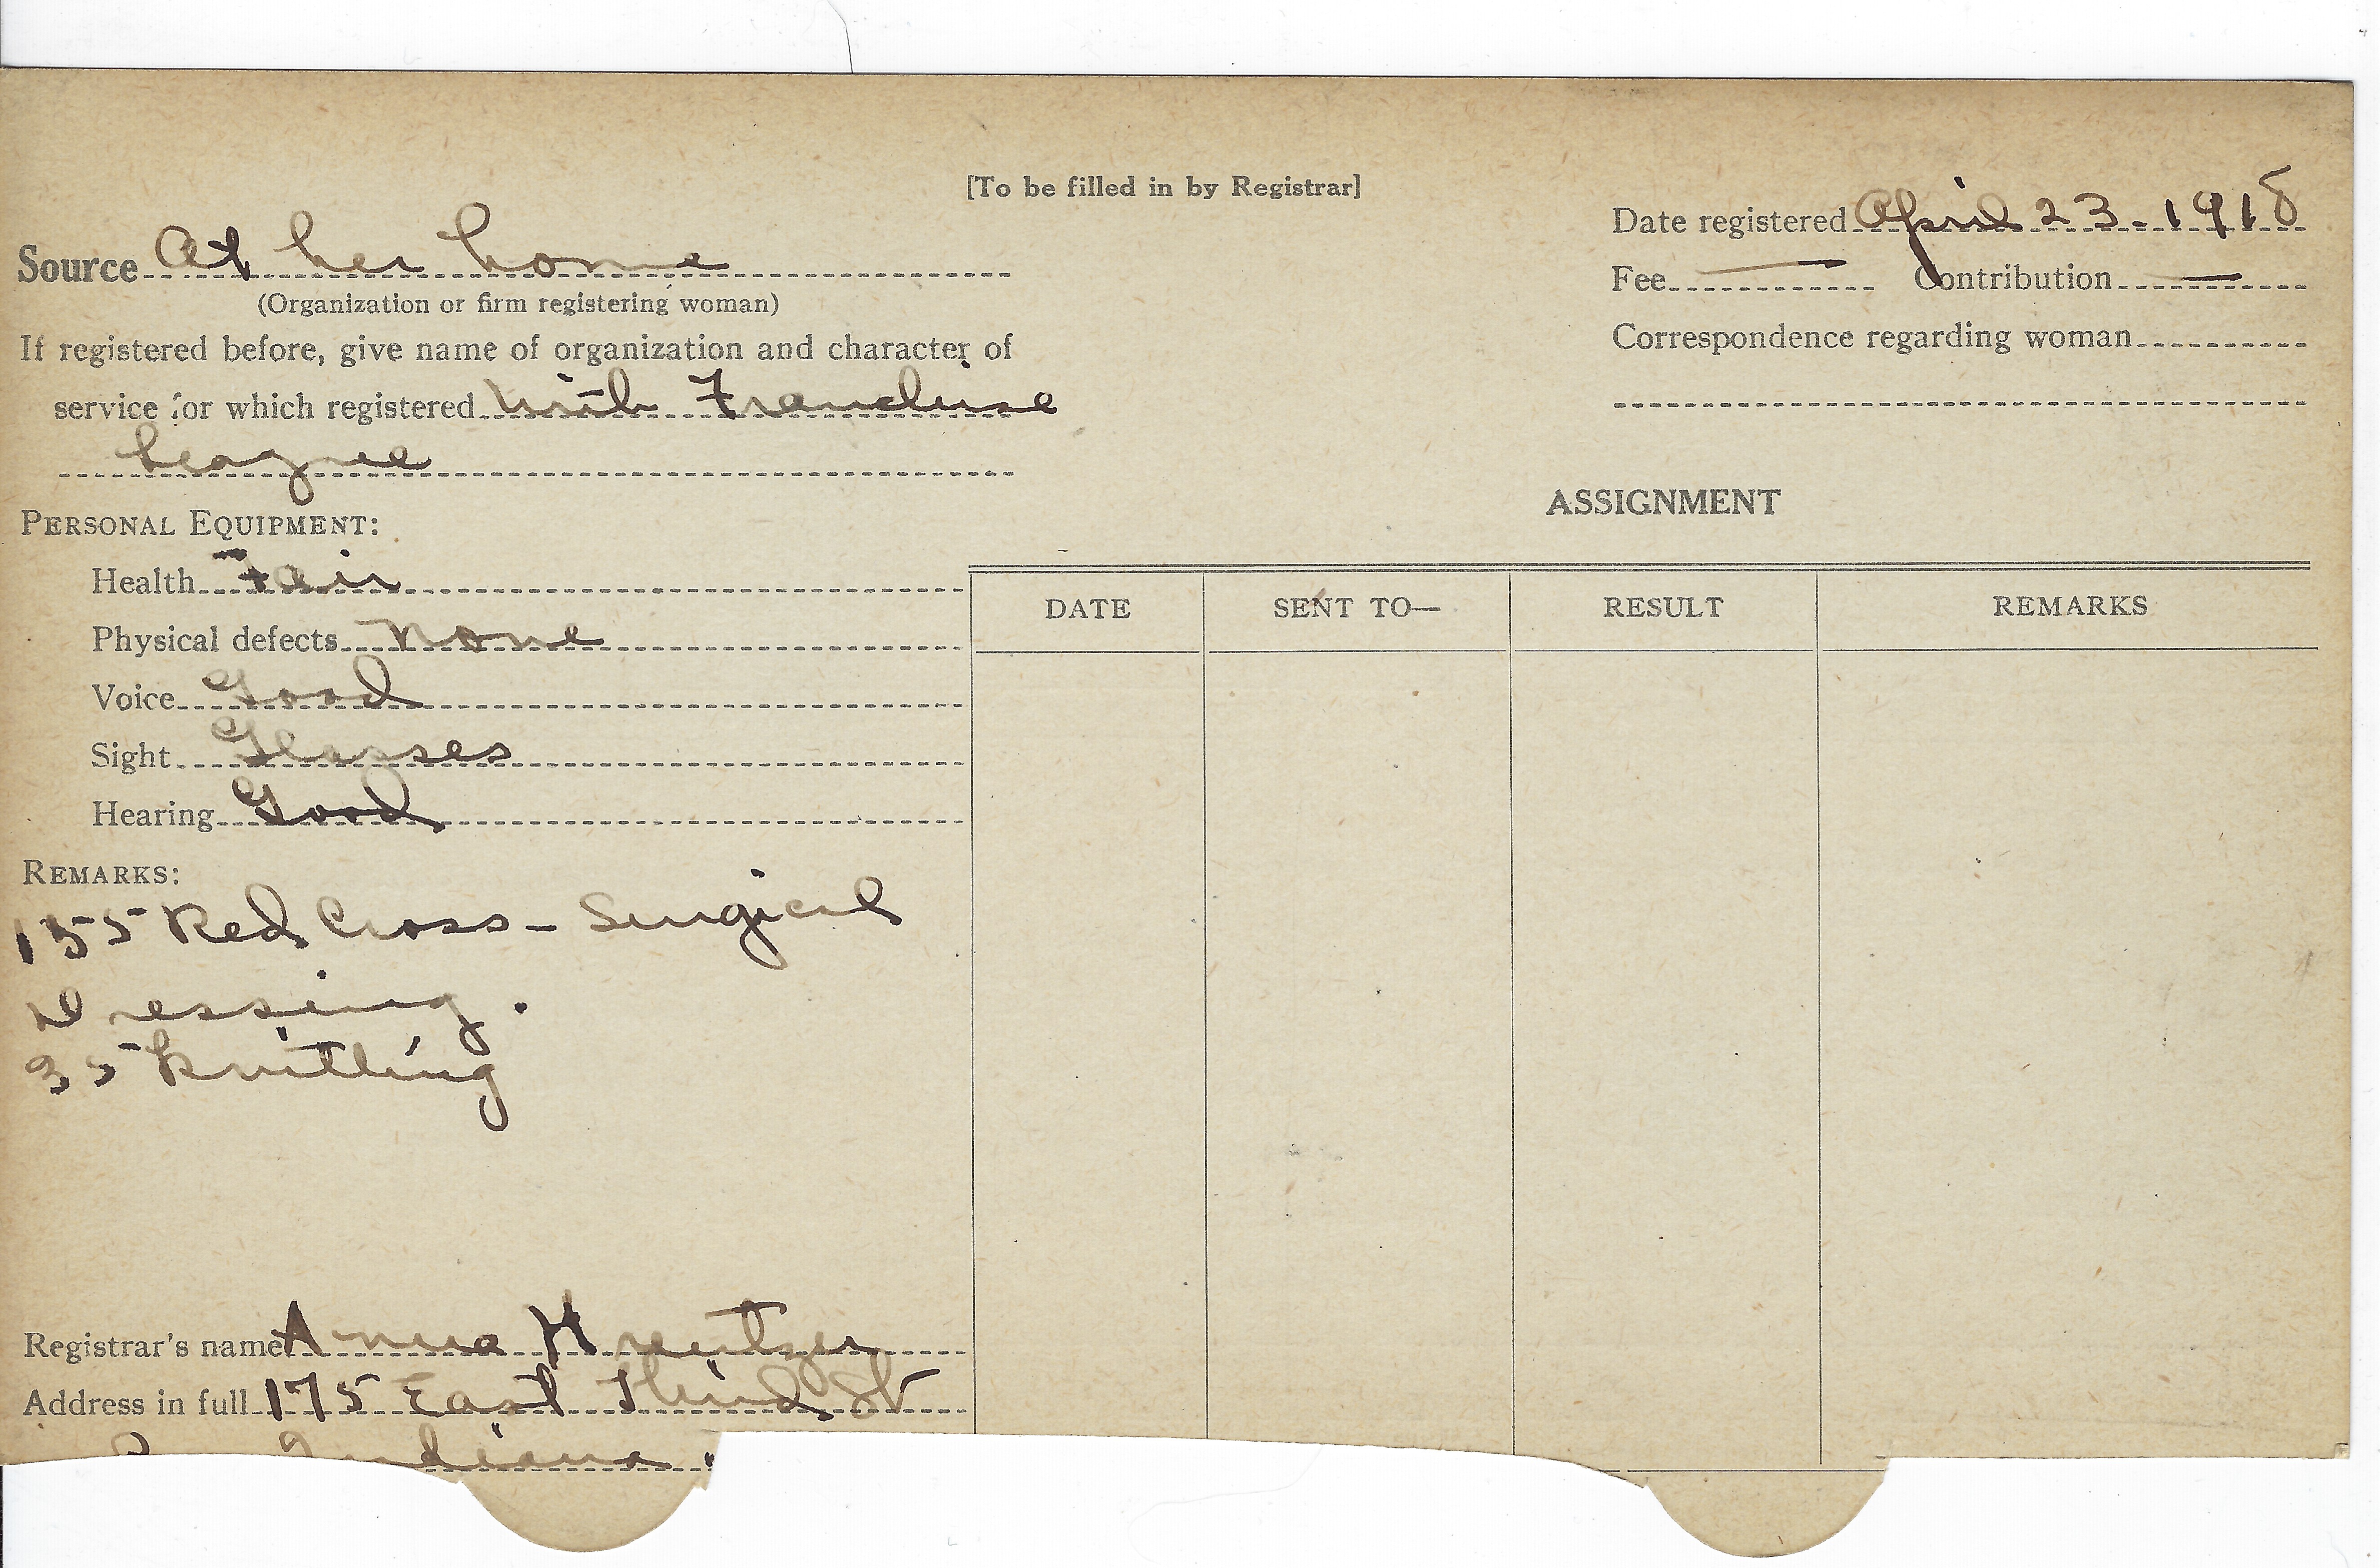 [To be filled in by Registrar]
Date registered April 23-1918
Source At her home
(Organization or firm registering woman)
Fee — Contribution —
If registered before, give name of organization and character of
Correspondence regarding woman
service for which registered With Franchise
League
ASSIGNMENT
PERSONAL EQUIPMENT:
Health Fair
Physical defects None
Voice Good
Sight Glasses
Hearing Good
DATE SENT TO— RESULT REMARKS
REMARKS:
155 Red Cross - Surgical
Dressing.
35 Knitting
Registrar's name Anna Kreitzer
Address in full 175 East Third St
Indiana.